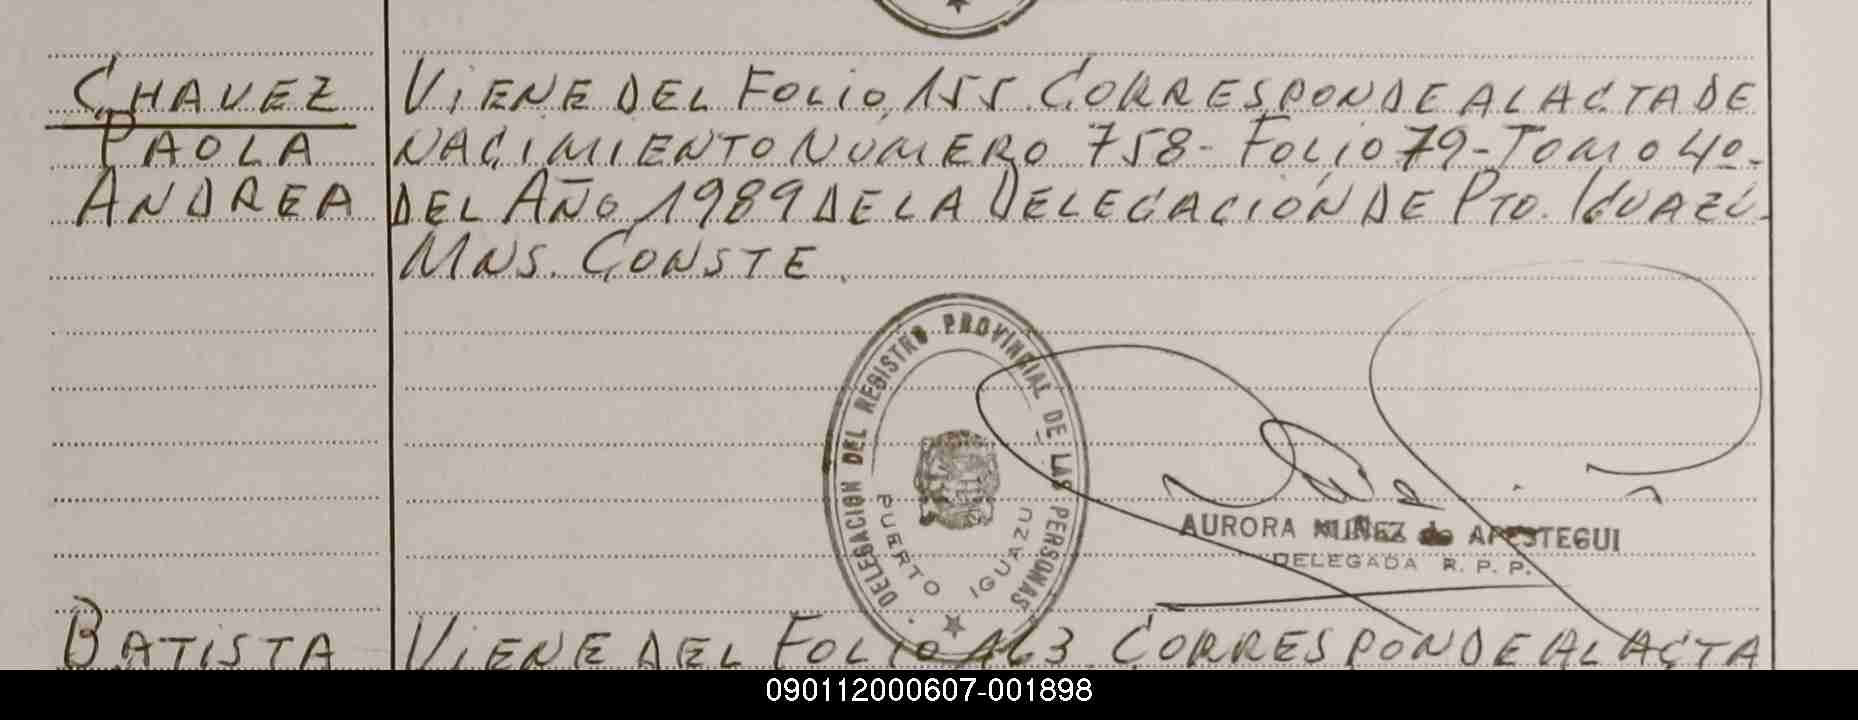 CHAVEZ
PAOLA
ANDREA
VIENE DEL FOLIO 155. CORRESPONDE AL ACTA DE
NACIMIENTO NUMERO 758- FOLIO 79- TOMO 4º-
DEL AÑO 1989 DE LA DELEGACIÓN DE PTO. IGUAZÚ-
MNS. CONSTE.
DELEGACION DEL REGISTRO PROVINCIAL DE LAS PERSONAS
PUERTO IGUAZU
AURORA NUÑEZ de APESTEGUI
DELEGADA R. P. P.
BATISTA
VIENE DEL FOLIO 163. CORRESPONDE AL ACTA
090112000607-001898